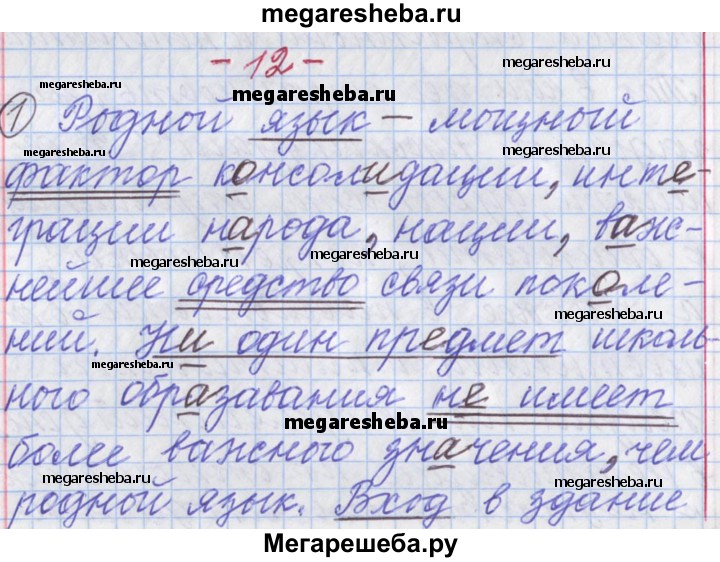 megaresheba.ru
- 12 -
megaresheba.ru
megaresheba.ru
megaresheba.ru
① Родной язык – мощный
megaresheba.ru
фактор консолидации, инте-
грации народа, нации, важ-
megaresheba.ru
megaresheba.ru
нейшее средство связи поколе-
ний. Ни один предмет школь-
megaresheba.ru
ного образавания не имеет
megaresheba.ru
более важного значения, чем
megaresheba.ru
megaresheba.ru
родной язык. Вход в здание
Мегарешеба.ру